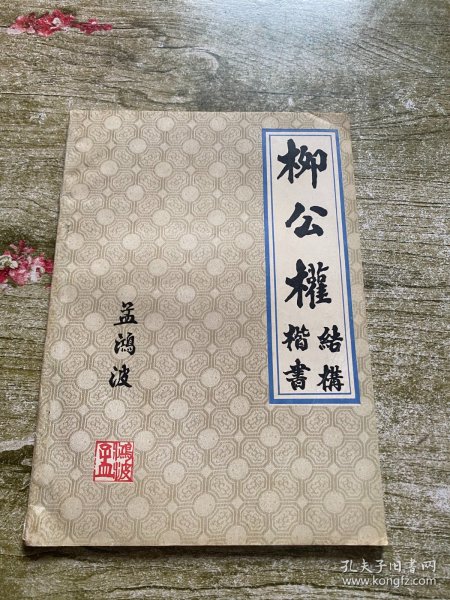 柳公權
楷書
結構
孟鴻波
鴻波
孟
孔夫子旧书网
www.kongfz.com